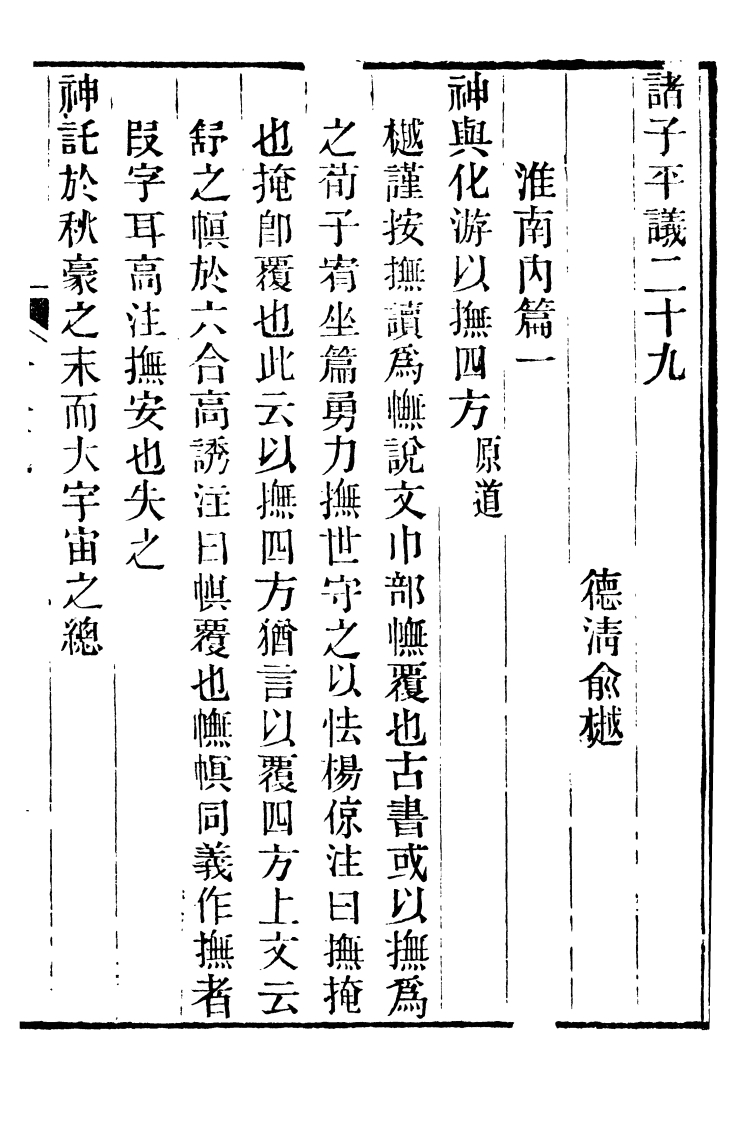 諸子平議二十九
德清俞樾
淮南內篇一
神與化游以撫四方原道
樾謹按撫讀爲幠說文巾部幠覆也古書或以撫爲
之荀子宥坐篇勇力撫世守之以怯楊倞注曰撫掩
也掩卽覆也此云以撫四方猶言以覆四方上文云
舒之幎於六合高誘注曰幎覆也幠幎同義作撫者
叚字耳高注撫安也失之
神託於秋豪之末而大宇宙之總